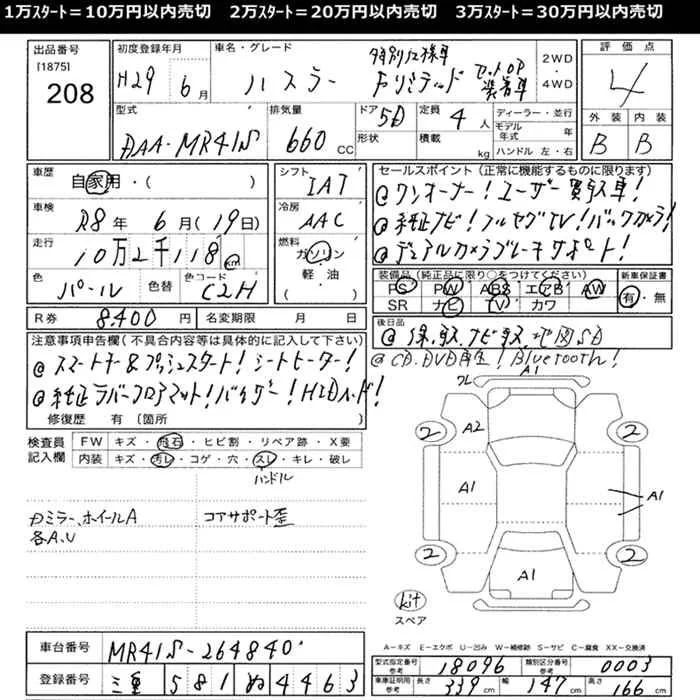 1万ｽﾀｰﾄ＝10万円以内売切　2万ｽﾀｰﾄ＝20万円以内売切　3万ｽﾀｰﾄ＝30万円以内売切
出品番号
[1875]
208
初度登録年月
H29 年 6 月
車名・グレード
ハスラー
特別仕様車
Fリミテッド
セットOP
装着車
2WD
・
4WD
評価点
4
外装 内装
B B
型式
DAA-MR41S
排気量
660 CC
ドア 5D
形状
定員 4 人
積載 kg
ディーラー・並行
モデル年式 年
ハンドル 左・右
車歴
自家用・( )
車検
R8年 6月(19日)
走行
10万2千118 km
色
パール
色替
色コード
C2H
シフト
IAT
冷房
AAC
燃料
ガソリン
軽・油
セールスポイント(正常に機能するものに限ります)
@ワンオーナー!ユーザー買取車!
@純正ナビ!フルセグTV!バックカメラ!
@デュアルカメラブレーキサポート!
装備品(純正品に限り○をつけてください)
PS PW ABS エアB AW
SR ナビ TV カワ
新車保証書
有・無
R券 8,400 円
名変期限 月 日
後日品
@保、取、ナビ取、地図SD
@CD.DVD再生! Bluetooth!
注意事項申告欄(不具合内容等は具体的に記入して下さい)
@スマートキー&プッシュスタート!シートヒーター!
@純正ラバーフロアマット!バイザー!HIDヘッド!
修復歴 有〔箇所 〕
検査員
記入欄
FW キズ・飛石・ヒビ割・リペア跡・X要
内装 キズ・汚レ・コゲ・穴・スレ・キレ・破レ
ハンドル
カミラー、ホイールA
各A、U
コアサポート歪
クレ
A1
2
A2
2
A1
A1
2
A1
2
kit
スペア
車台番号 MR41S-264840
登録番号 三重 581 ぬ 4463
A－キズ E－エクボ U－凹み W－補修跡 S－サビ C－腐食 XX－交換済
型式指定番号
参考
18096
類別区分番号
参考
0003
車庫証明用
参考
長さ 339 cm
幅 147 cm
高さ 166 cm